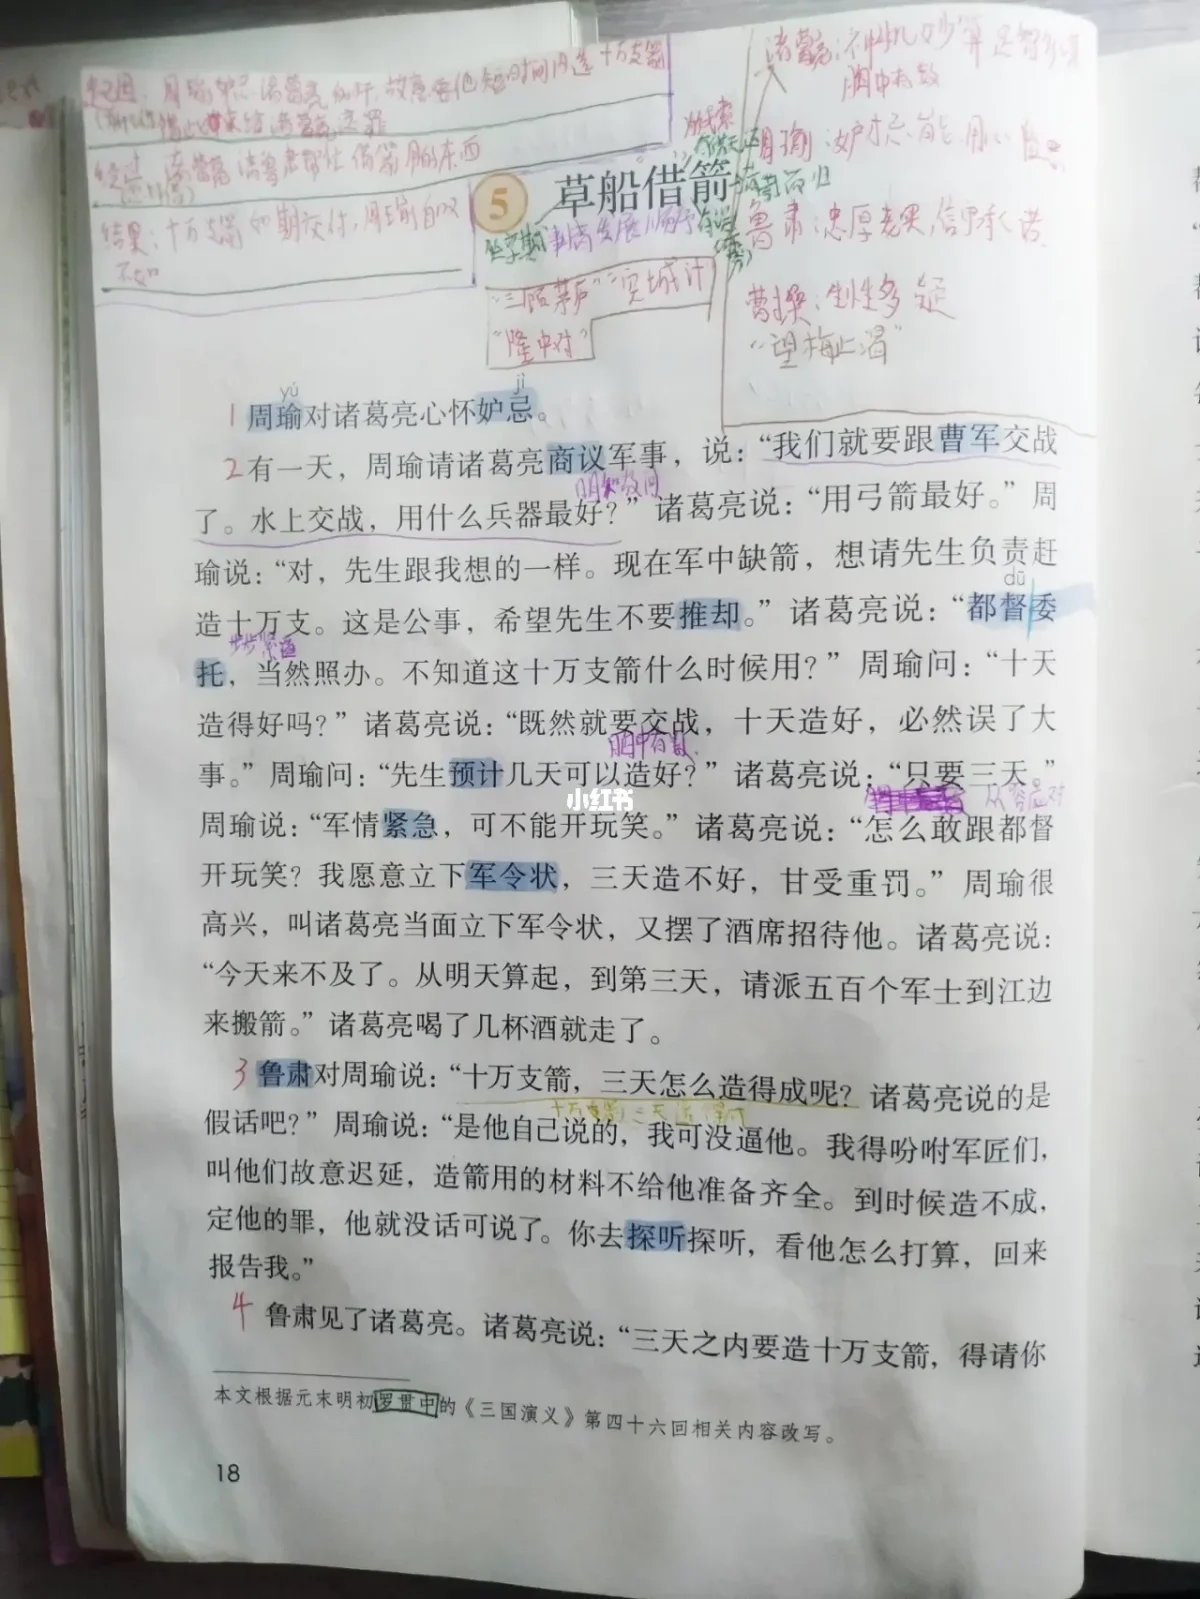 起因：周瑜妒忌诸葛亮的才，故意要他短时间内造十万支箭
诸葛亮请鲁肃帮忙借箭用的东西
结果：十万支箭如期交付，周瑜自叹
不如
诸葛亮：神机妙算
胸中有数
周瑜：妒忌
鲁肃：忠厚老实，信守承诺
曹操：生性多疑
“望梅止渴”
5 草船借箭
事情发展顺序
“三顾茅庐”“空城计”
“隆中对”
yú jì
1 周瑜对诸葛亮心怀妒忌。
2 有一天，周瑜请诸葛亮商议军事，说：“我们就要跟曹军交战
明知故问
了。水上交战，用什么兵器最好？”诸葛亮说：“用弓箭最好。”周
瑜说：“对，先生跟我想的一样。现在军中缺箭，想请先生负责赶
dū
造十万支。这是公事，希望先生不要推却。”诸葛亮说：“都督委
步步紧逼
托，当然照办。不知道这十万支箭什么时候用？”周瑜问：“十天
造得好吗？”诸葛亮说：“既然就要交战，十天造好，必然误了大
胸中有数
事。”周瑜问：“先生预计几天可以造好？”诸葛亮说：“只要三天。”
从容应对
小红书
周瑜说：“军情紧急，可不能开玩笑。”诸葛亮说：“怎么敢跟都督
开玩笑？我愿意立下军令状，三天造不好，甘受重罚。”周瑜很
高兴，叫诸葛亮当面立下军令状，又摆了酒席招待他。诸葛亮说：
“今天来不及了。从明天算起，到第三天，请派五百个军士到江边
来搬箭。”诸葛亮喝了几杯酒就走了。
3 鲁肃对周瑜说：“十万支箭，三天怎么造得成呢？诸葛亮说的是
十万支箭三天造得成
假话吧？”周瑜说：“是他自己说的，我可没逼他。我得吩咐军匠们，
叫他们故意迟延，造箭用的材料不给他准备齐全。到时候造不成，
定他的罪，他就没话可说了。你去探听探听，看他怎么打算，回来
报告我。”
4 鲁肃见了诸葛亮。诸葛亮说：“三天之内要造十万支箭，得请你
本文根据元末明初罗贯中的《三国演义》第四十六回相关内容改写。
18